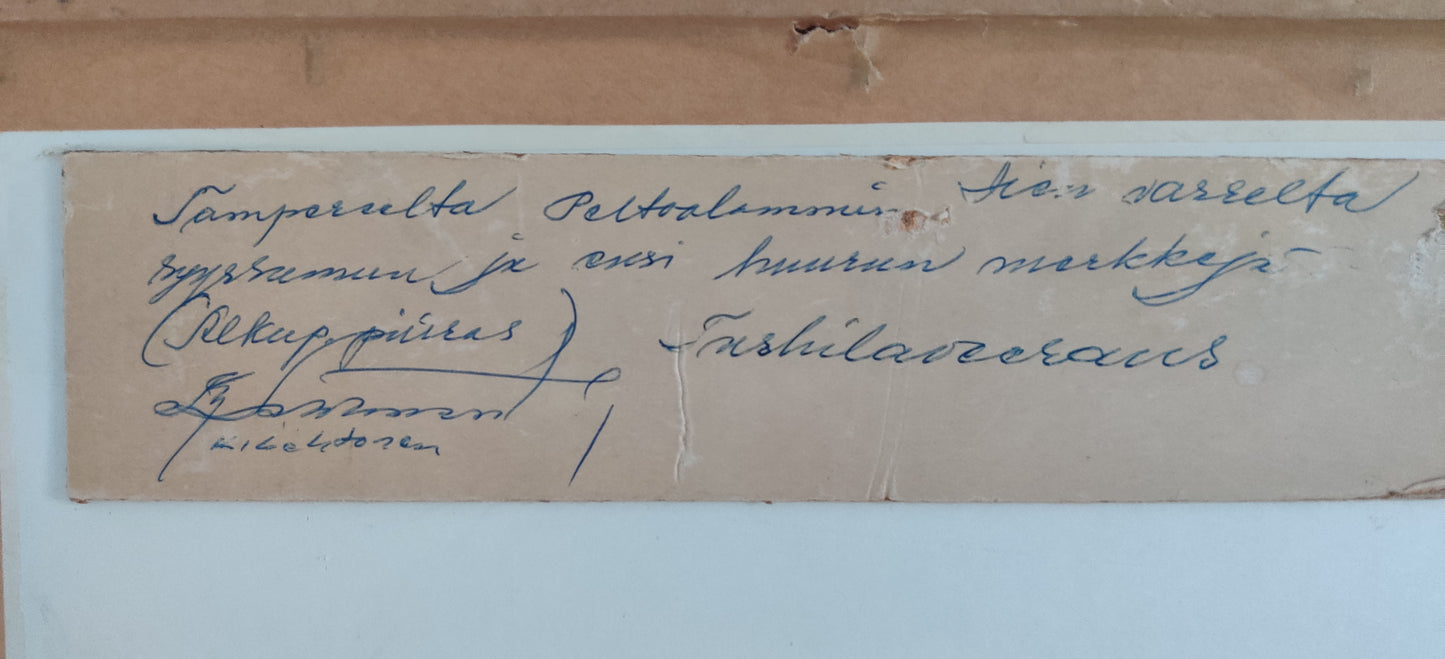 Tampereelta Peltoalammin tien varrelta
syyssumun ja ensi huurun merkkejä
(Alkup. piirros) Tushilaveeraus
K. Lehtonen